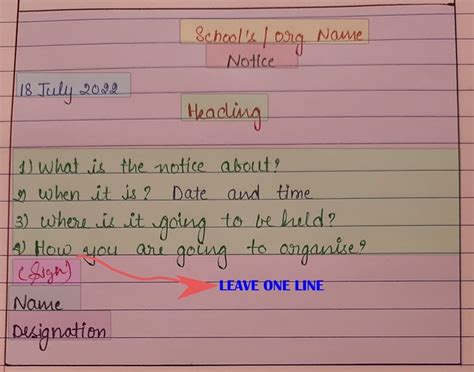 School's / org Name
Notice
18 July 2022
Heading
1) What is the notice about?
2) When it is? Date and time
3) Where is it going to be held?
4) How you are going to organise?
(Sign)
LEAVE ONE LINE
Name
Designation